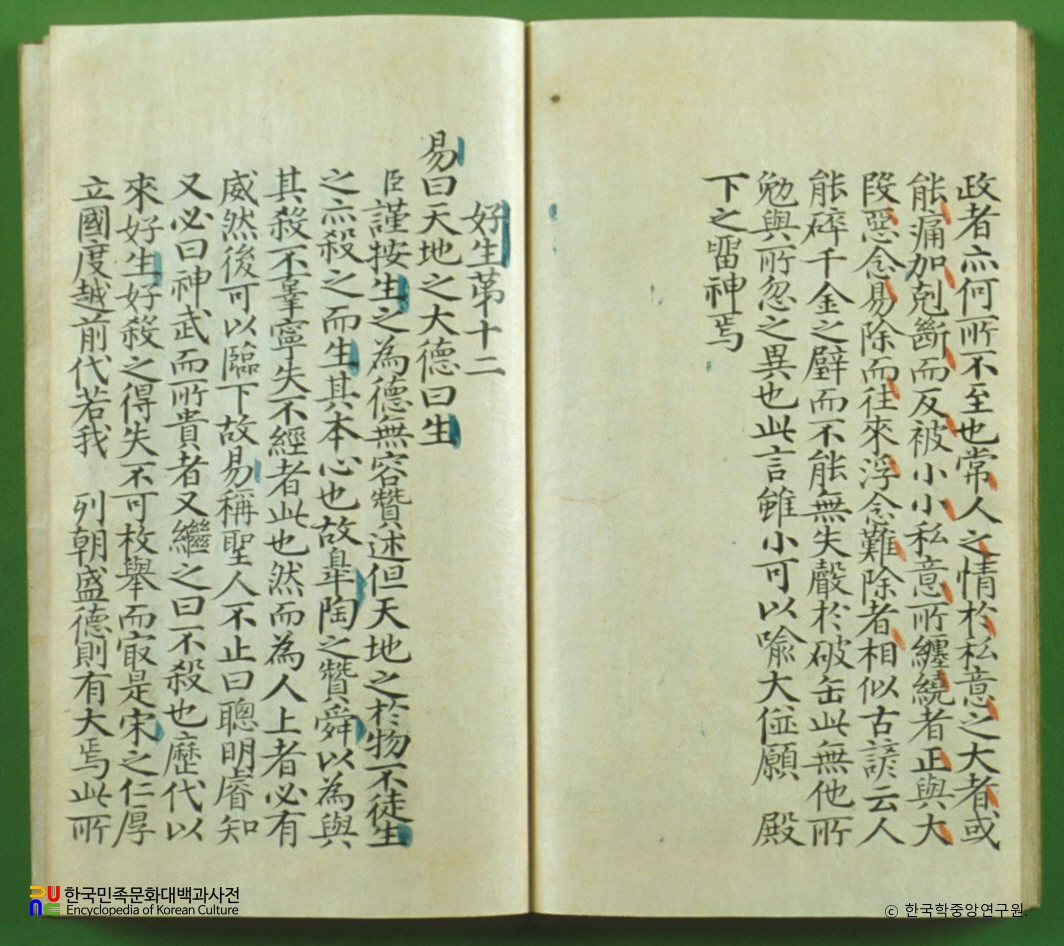 政者亦何所不至也常人之情於私意之大者或
能痛加剋斷而反被小小私意所纏繞者正與大
段惡念易除而往來浮念難除者相似古諺云人
能碎千金之璧而不能無失聲於破缶此無他所
勉與所忽之異也此言雖小可以喩大伏願 殿
下之留神焉
好生第十二
易曰天地之大德曰生
臣謹按生之為德無容贊述但天地之於物不徒生
之亦殺之而生其本心也故皐陶之贊舜以為與
其殺不辜寧失不經者此也然而為人上者必有
威然後可以臨下故易稱聖人不止曰聰明睿知
又必曰神武而所貴者又繼之曰不殺也歷代以
來好生好殺之得失不可枚舉而㝡是宋之仁厚
立國度越前代若我 列朝盛德則有大焉此所
한국민족문화대백과사전
Encyclopedia of Korean Culture
© 한국학중앙연구원.